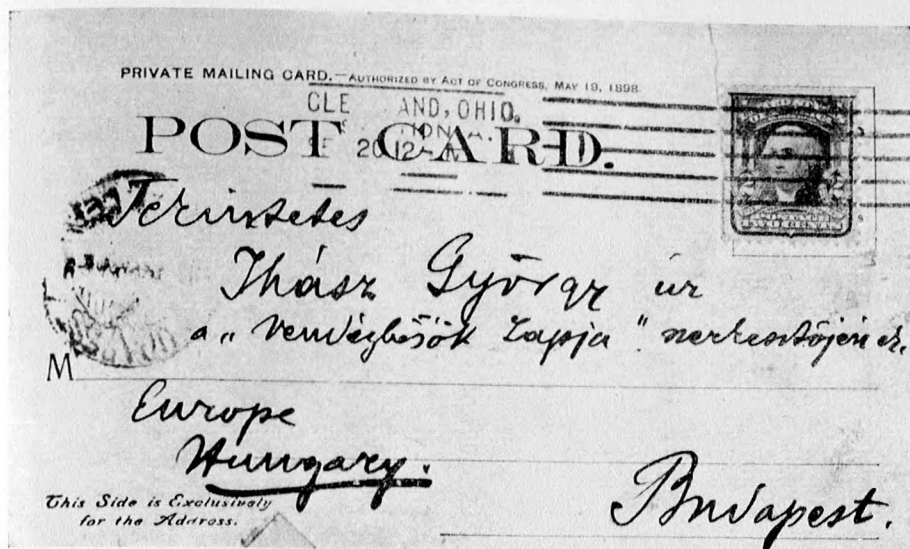 PRIVATE MAILING CARD.—AUTHORIZED BY ACT OF CONGRESS, MAY 19, 1898.
CLE AND, OHIO.
POST CARD.
20 12-
Tekintetes
Ihász György úr
a „Vendéglősök Lapja" szerkesztőjének.
M
Europe
Hungary.
This Side is Exclusively
for the Address.
Budapest.